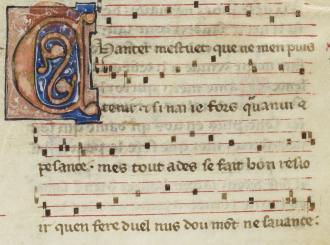 Chanter mestuet que ne men puis
tenir & si nai ie fors quanui &
pesance. mes tout ades se fait bon resio
ir quen fere duel nus dou mōt ne sauance.